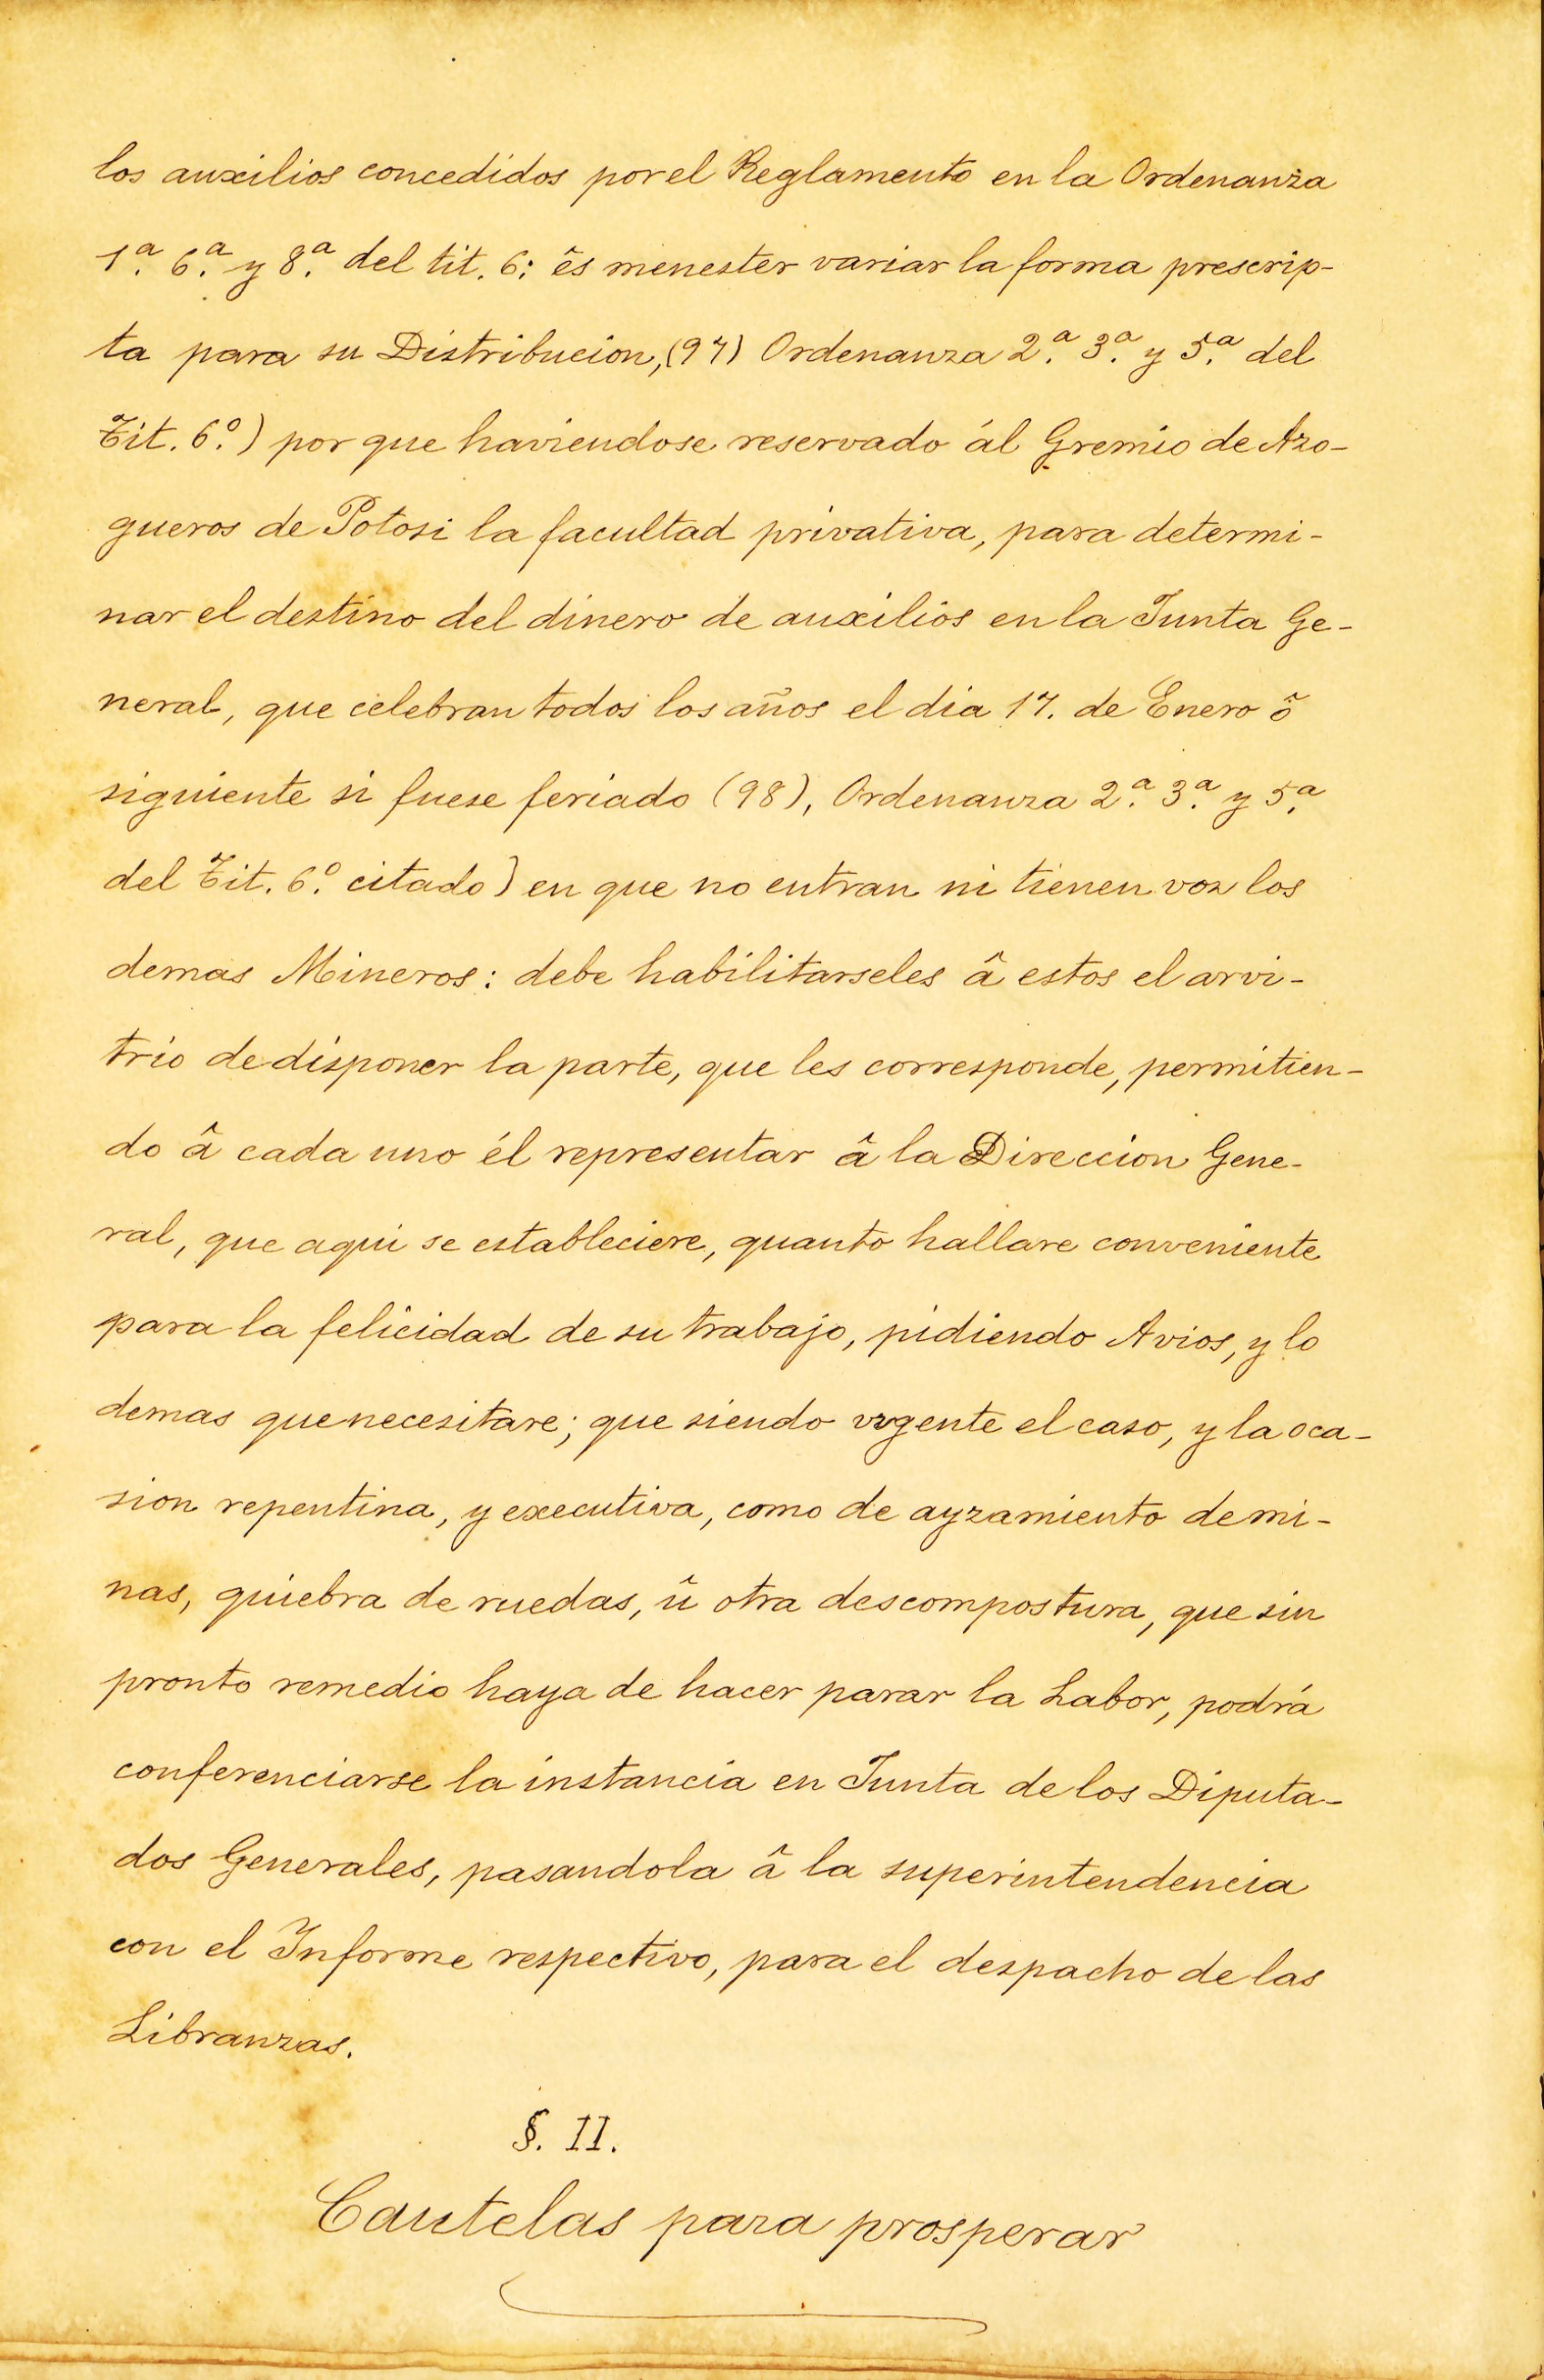 los auxilios concedidos por el Reglamento en la Ordenanza
1ª. 6ª. y 8ª. del tit. 6: ês menester variar la forma prescrip-
ta para su Distribucion, (97) Ordenanza 2ª. 3ª. y 5ª. del
Tit. 6º.) por que haviendose reservado ál Gremio de Azo-
gueros de Potosi la facultad privativa, para determi-
nar el destino del dinero de auxilios en la Junta Ge-
neral, que celebran todos los años el dia 17. de Enero ô
siguiente si fuese feriado (98), Ordenanza 2ª. 3ª. y 5ª.
del Tit. 6º. citado) en que no entran ni tienen voz los
demas Mineros: debe habilitarseles â estos el arvi-
trio de disponer la parte, que les corresponde, permitien-
do â cada uno él representar â la Direccion Gene-
ral, que aqui se estableciere, quanto hallare conveniente
para la felicidad de su trabajo, pidiendo Avios, y lo
demas que necesitare; que siendo vrgente el caso, y la oca-
sion repentina, y executiva, como de ayzamiento de mi-
nas, quiebra de ruedas, û otra descompostura, que sin
pronto remedio haya de hacer parar la Labor, podrá
conferenciarse la instancia en Junta de los Diputa-
dos Generales, pasandola â la superintendencia
con el Informe respectivo, para el despacho de las
Libranzas.
§. II.
Cautelas para prosperar